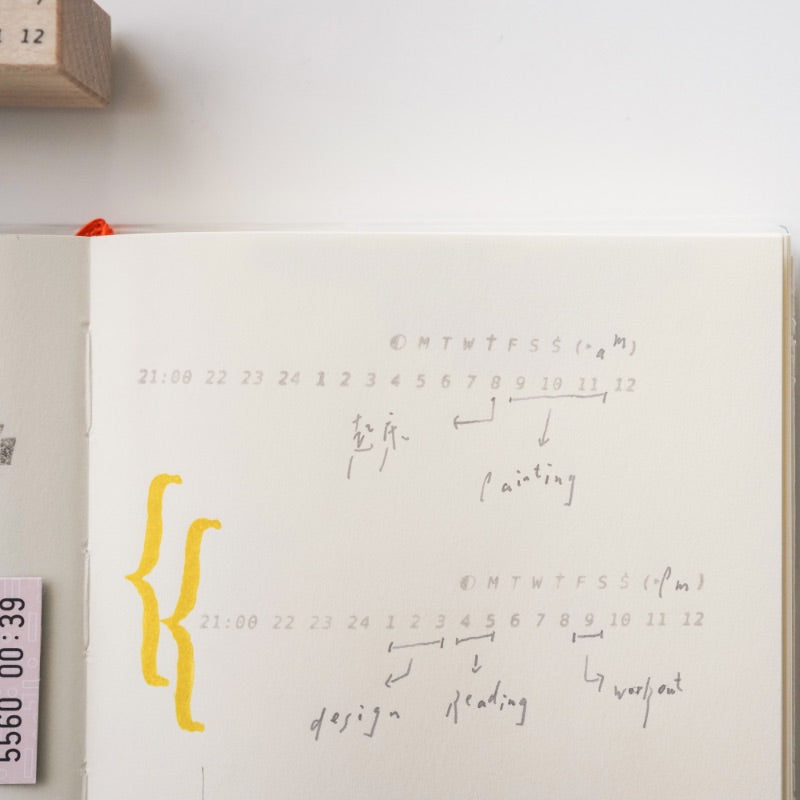 12
◐ M T W T F S S (· am)
21:00 22 23 24 1 2 3 4 5 6 7 8 9 10 11 12
起床
painting
◐ M T W T F S S (· pm)
21:00 22 23 24 1 2 3 4 5 6 7 8 9 10 11 12
design
Reading
workout
5560 00:39